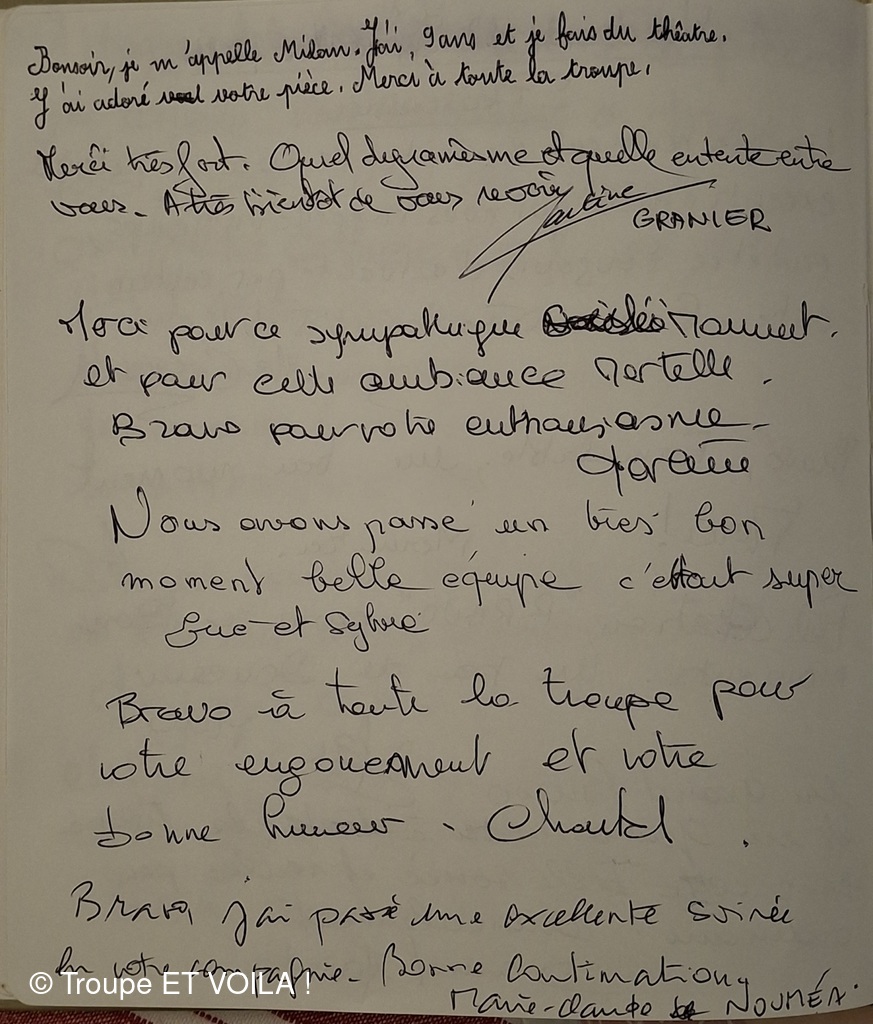 Bonsoir, je m'appelle Milan. J'ai, 9 ans et je fais du théâtre.
J'ai adoré votre pièce. Merci à toute la troupe.
Merci très fort. Quel dynamisme et quelle entente entre
vous. A très bientôt de vous revoir Martine
GRANIER
Merci pour ce sympathique moment.
et pour cette ambiance Mortelle.
Bravo pour votre enthousiasme.
Nous avons passé un très bon
moment belle équipe c'était super
et Sylvie
Bravo à toute la troupe pour
votre engouement et votre
bonne humeur. Chantal.
Bravo, j'ai passé une excellente soirée
en votre compagnie. Bonne Continuation.
Marie-Claude NOUMÉA.
© Troupe ET VOILA !